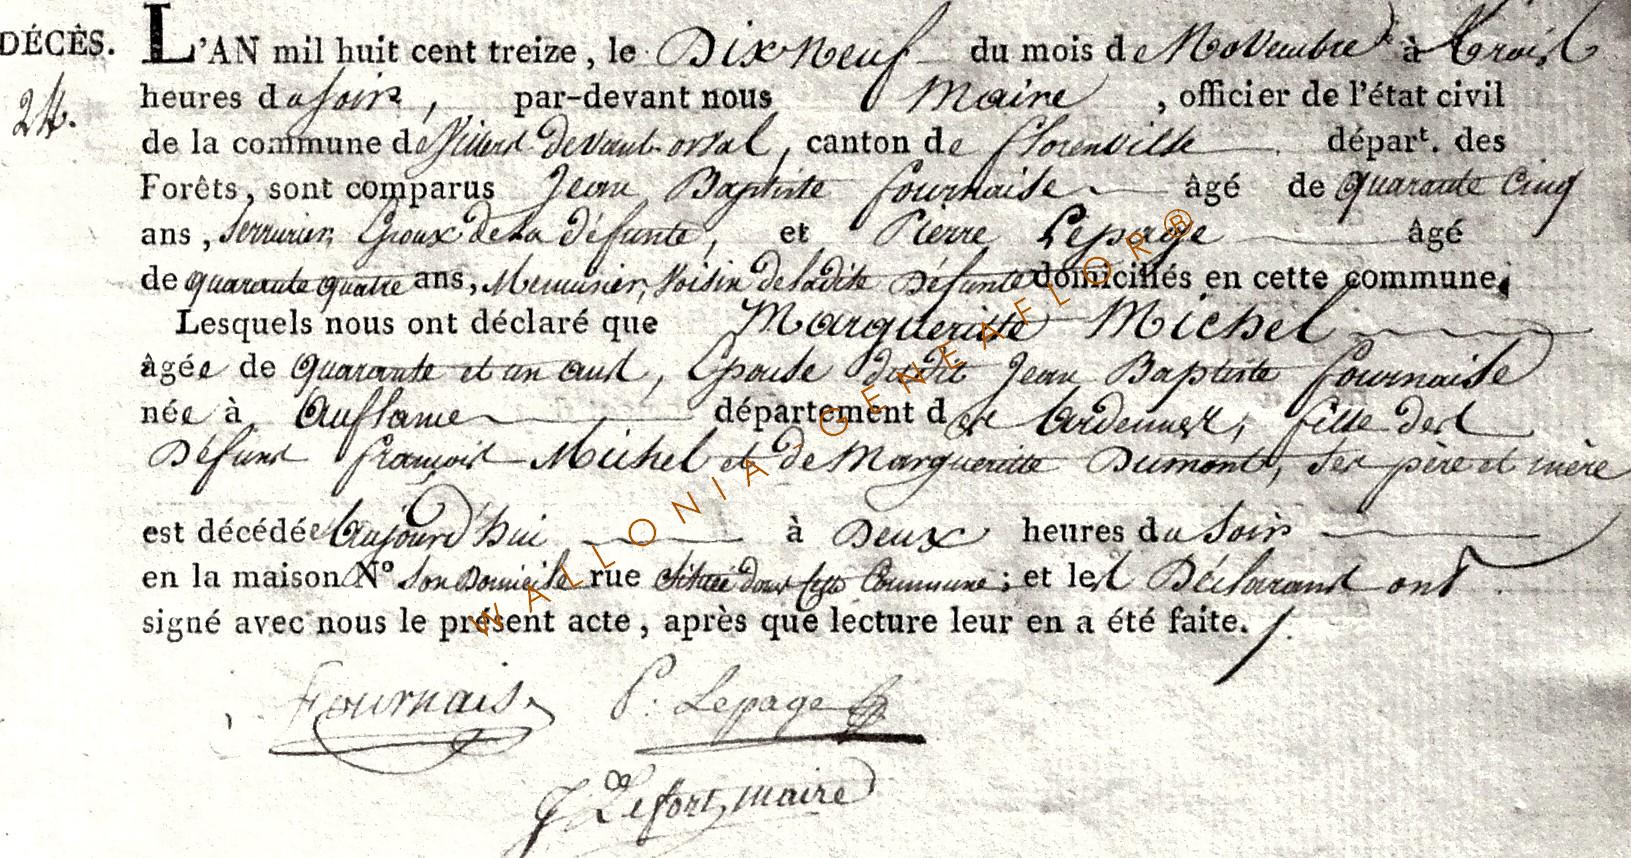 DÉCÈS.
24.
L'AN mil huit cent treize, le Dix Neuf du mois de Novembre à trois
heures du soir, par-devant nous Maire, officier de l'état civil
de la commune de Villers devant orval, canton de florenville départ. des
Forêts, sont comparus Jean Baptiste fournaise âgé de quarante cinq
ans, Serrurier, Epoux de la défunte, et Pierre Lepage âgé
de quarante quatre ans, Menuisier, Voisin de ladite Défunte domiciliés en cette commune;
Lesquels nous ont déclaré que Margueritte Michel
âgée de quarante et un ans, Epouse dudit Jean Baptiste fournaise
née à Auflame département des Ardennes, fille des
Défunts françois Michel et de Margueritte Dumont, ses père et mère
est décédée aujourd'hui à Deux heures du Soir
en la maison N° son Domicile rue située dans cette Commune; et les Déclarants ont
signé avec nous le présent acte, après que lecture leur en a été faite.
Fournaise P. Lepage
J Lefort, maire
WALLONIA-GENEAFLOR®